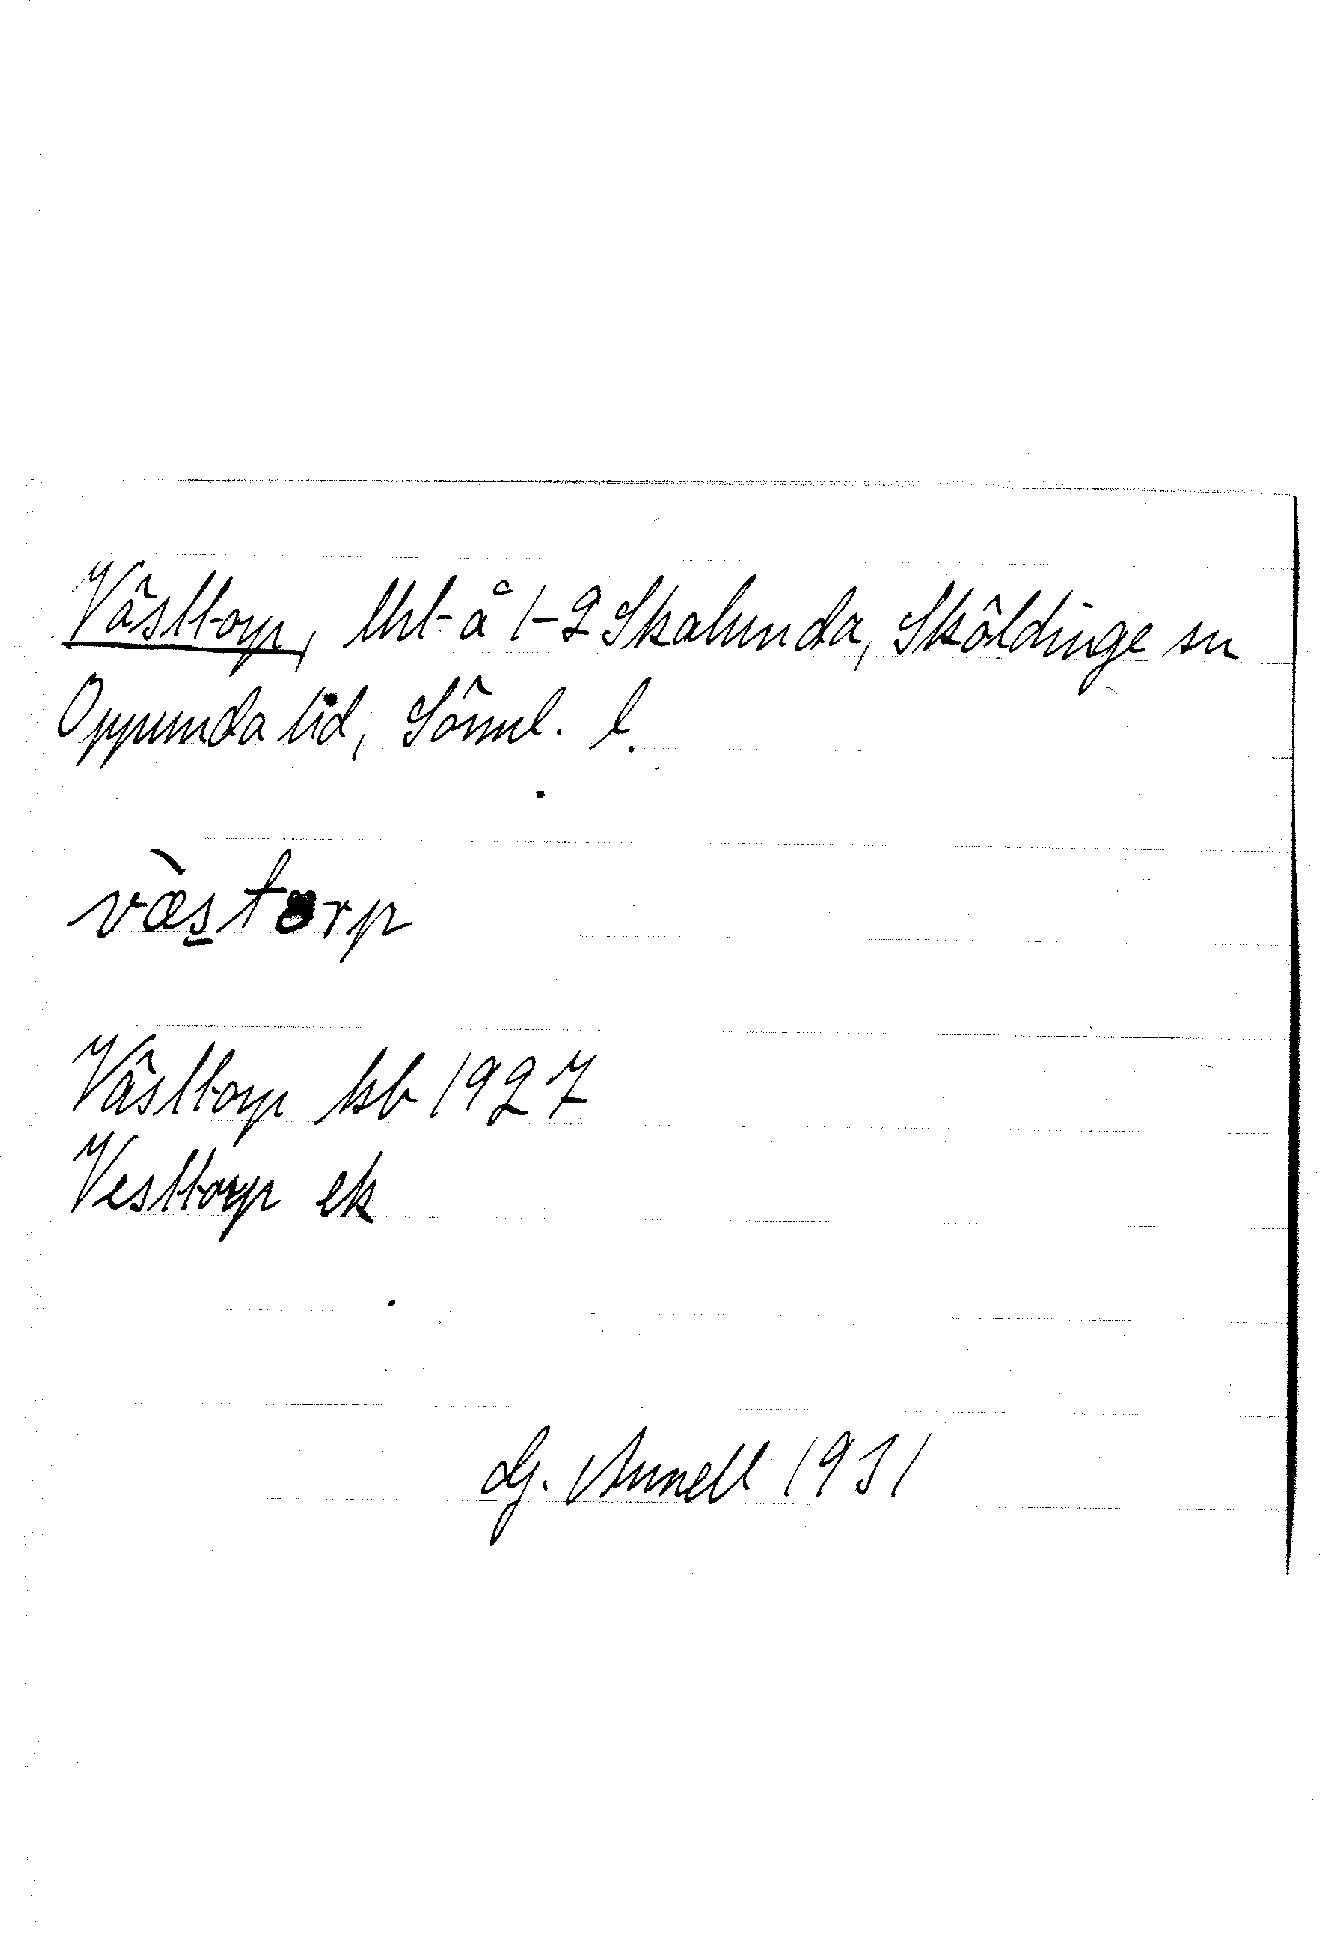 Västtorp, lht å 1-2 Skalunda, Sköldinge sn
Oppunda hd, Söml. l.
vàstorp
Västtorp kb 1927
Vesttorp ek
G. Annell 1931